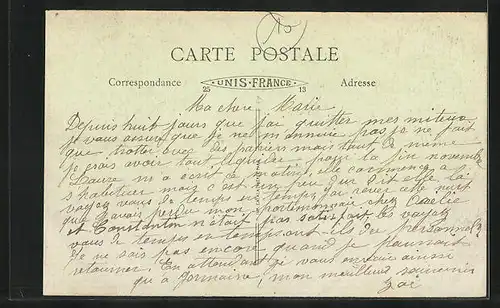 CARTE POSTALE
Correspondance UNIS-FRANCE Adresse
25 13
Ma chère Marie
Depuis huit jours que j'ai quitter mes miteux
je vous assure que je ne m'ennuie pas je ne fait
que trotter avec des papiers mais tout de même
je crois avoir tout liquider pour la fin novembre
Laure m'a écrit ce matin, elle commence a
s'habituer mais c'est un peu dur dit elle la
voyez vous de temps en temps, j'ai rêver cette nuit
que j'avais perdu mon portemonnaie chez Coelie
et Constantin n'était pas satisfait, les voyez
vous de temps en temps ont-ils du personnel?
Je ne sais pas encore quand je pourrait
retourner. En attendant je vous envoie ainsi
qu'a Germaine, mon meilleur souvenir